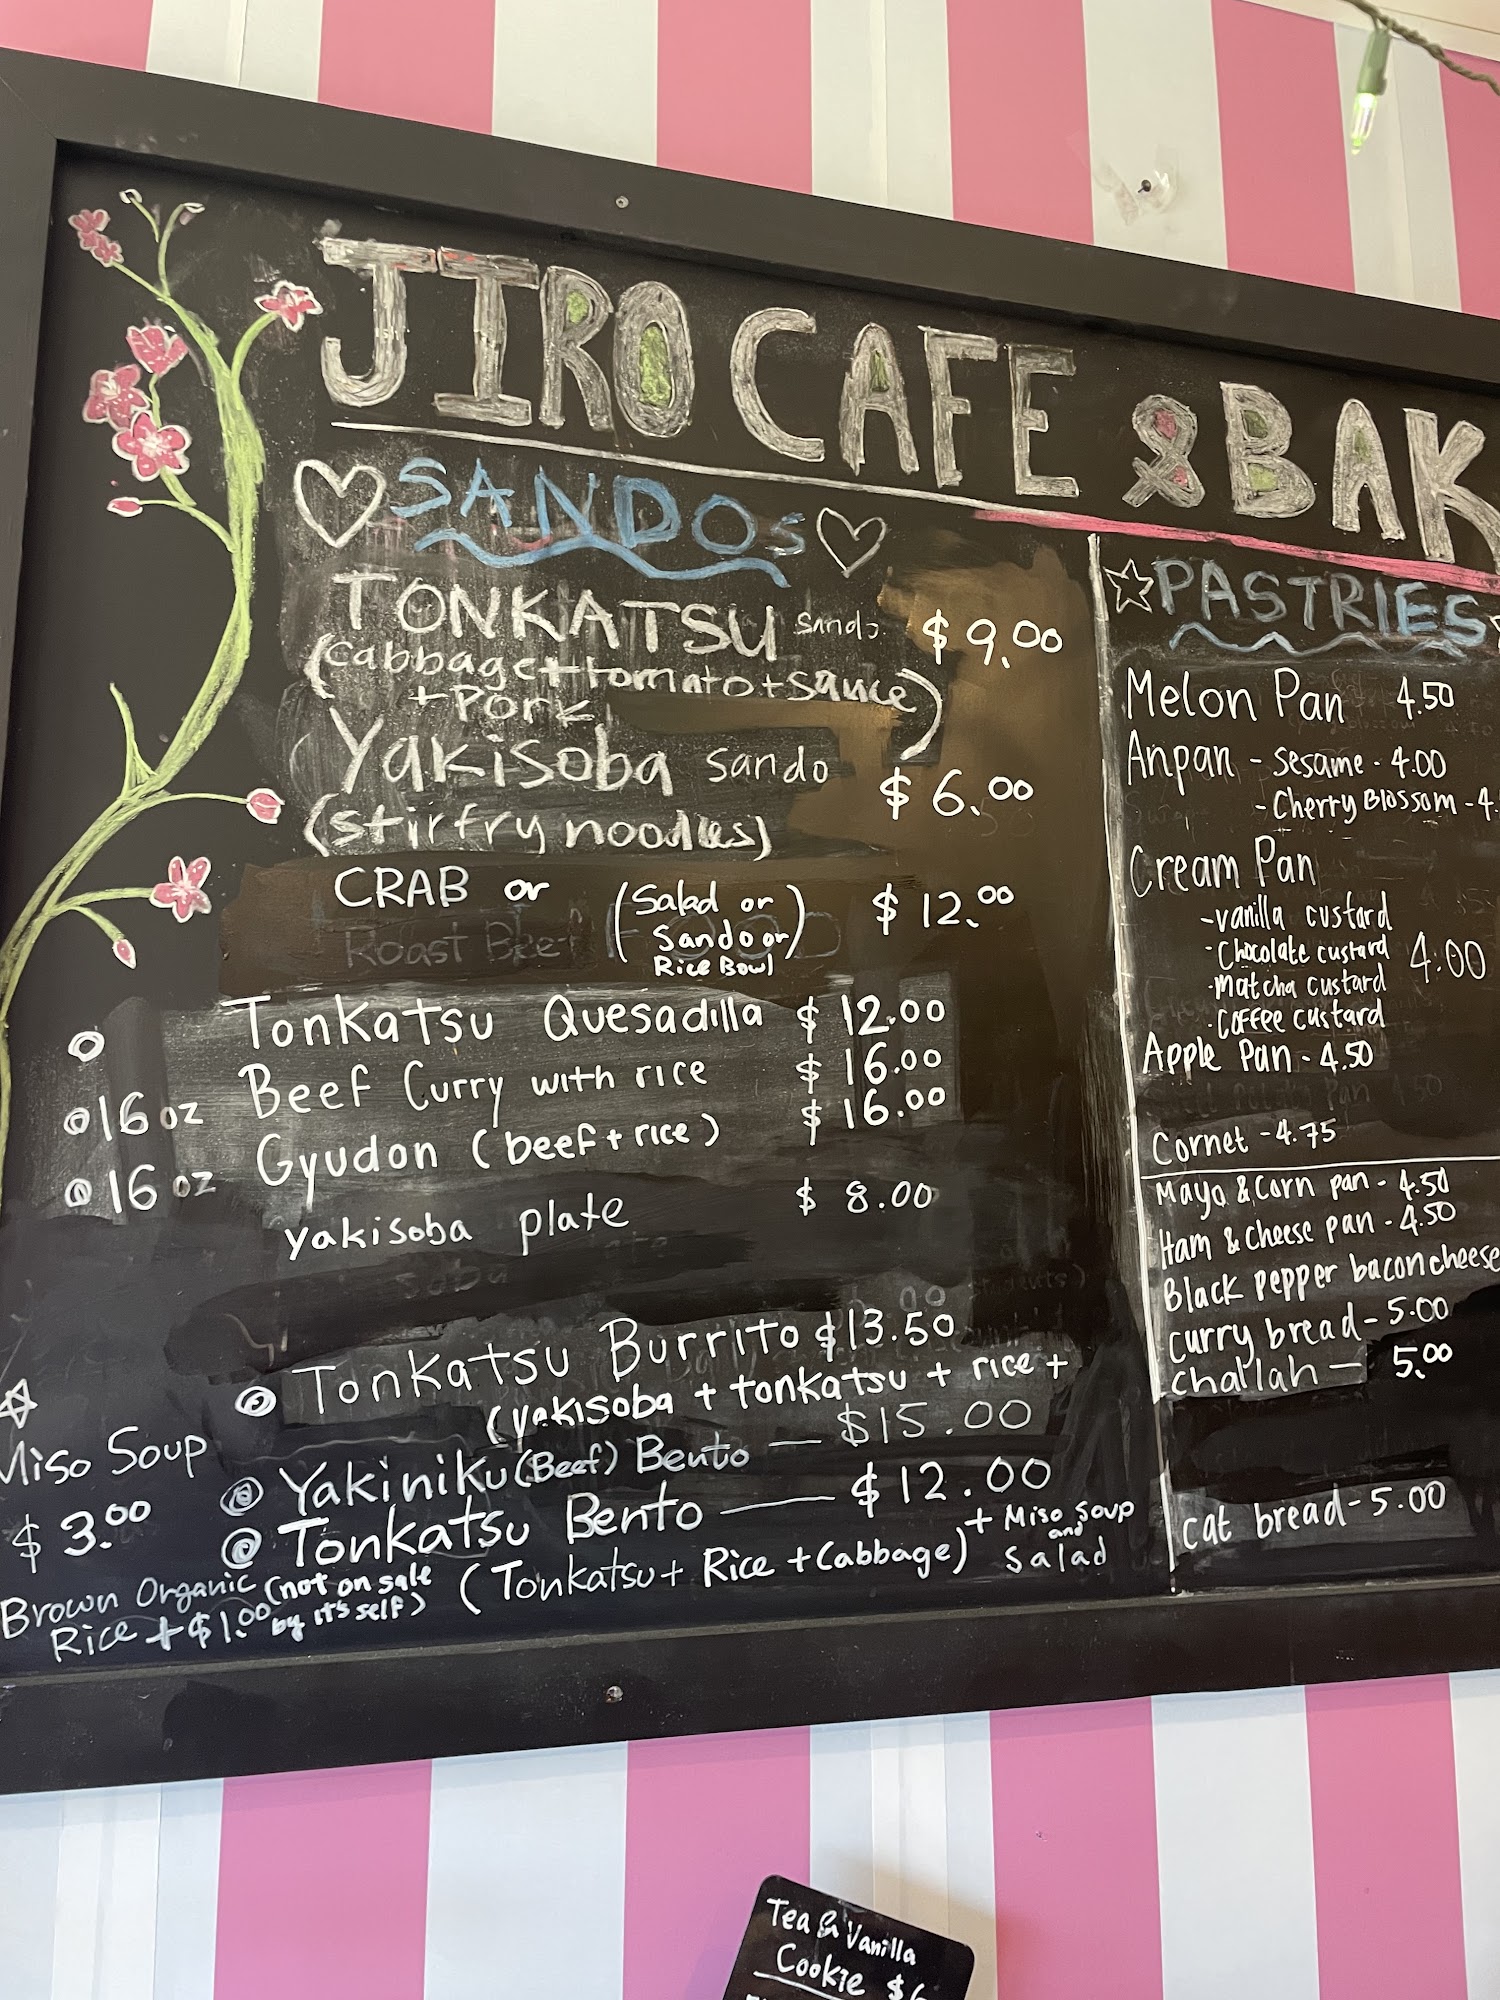 JIRO CAFE & BAK
SANDOs
TONKATSU Sando $9.00
(cabbage + tomato + sauce
+ Pork)
Yakisoba sando $6.00
(stirfry noodles)
CRAB or (Salad or $12.00
Roast Beef Sando or
Rice Bowl)
Tonkatsu Quesadilla $12.00
16 oz Beef Curry with rice $16.00
16 oz Gyudon (beef + rice) $16.00
yakisoba plate $8.00
Tonkatsu Burrito $13.50
(yakisoba + tonkatsu + rice +
Yakiniku (Beef) Bento — $15.00
Tonkatsu Bento — $12.00
(Tonkatsu + Rice + Cabbage) + Miso Soup
and
Salad
Miso Soup
$3.00
Brown Organic (not on sale
Rice + $1.00 by it's self)
PASTRIES
Melon Pan 4.50
Anpan - sesame - 4.00
- Cherry Blossom - 4.
Cream Pan
- vanilla custard
- Chocolate custard 4.00
- Matcha custard
- Coffee custard
Apple Pan - 4.50
Cornet - 4.75
Mayo & Corn pan - 4.50
Ham & Cheese pan - 4.50
Black pepper bacon cheese
Curry bread - 5.00
Challah — 5.00
Cat bread - 5.00
Tea & Vanilla
Cookie $6